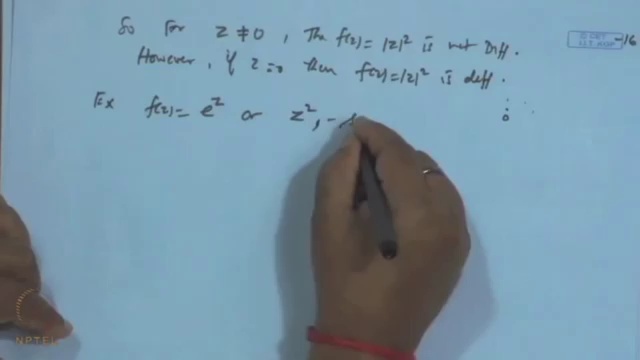 So For z ≠ 0, The f(z) = |z|² is not Diff.
However, if z = 0 then f(z) = |z|² is diff.
Ex f(z) = e^z or z², -
-16
NPTEL